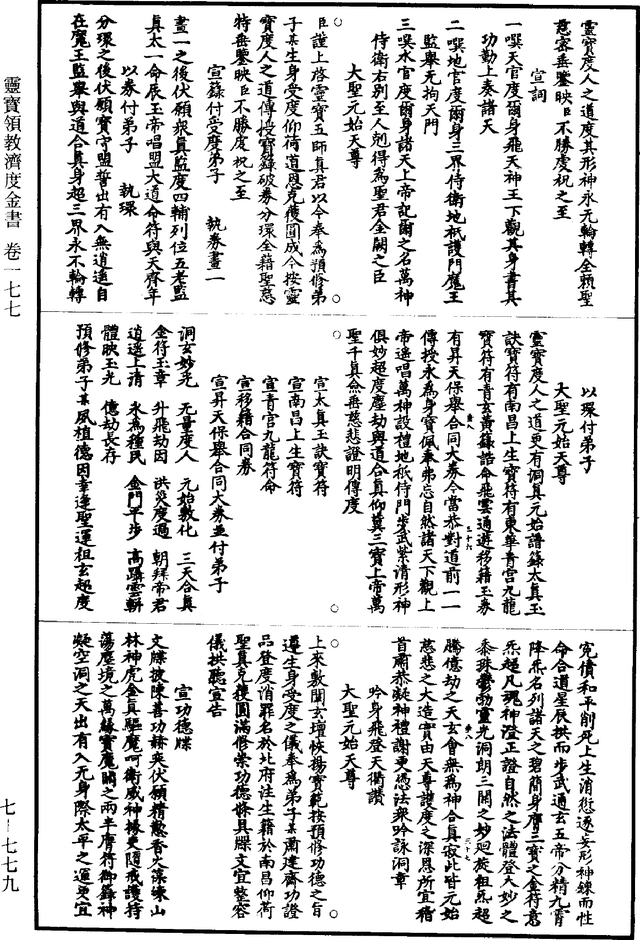 靈寶度人之道度其形神永无輪轉全賴聖
慈容垂鑒映臣不勝虔祝之至
宣詞
一噀天官度爾身飛天神王下觀其身書其
功勤上奏諸天
二噀地官度爾身三界侍衛地祇護門魔王
監舉无拘天門
三噀水官度爾身諸天上帝記爾之名萬神
侍衛右別至人剋得為聖君金闕之臣
大聖元始天尊
臣謹上啓靈寶五師真君以今奉為預修弟
子某生身受度仰荷道恩克獲圓成今按靈
寶度人之道傳授寶籙破券分環全藉聖慈
特垂鑒映臣不勝虔祝之至
宣籙付受度弟子 執券畫一
畫一之後伏願衆真監度四輔列位五老監
真太一命辰玉帝唱盟大道命符與天齊年
以券付弟子 執環
分環之後伏願寶守盟誓出有入無逍遙自
在魔王監舉與道合真身超三界永不輪轉
以環付弟子
大聖元始天尊
靈寶度人之道更有洞真元始譜錄太真玉
訣寶符有南昌上生寶符有東華青宮九龍
寶符有青玄黃籙誥命飛雲通遊移籍玉券
有昇天保舉合同大券今當恭對道前一一
傳授永為身寶佩奉弗忘自然諸天下觀上
帝遙唱萬神設禮地祇侍門步武紫清形神
俱妙超度塵劫與道合真仰冀三寶上帝萬
聖千真僉垂慈悲證明傳度
宣太真玉訣寶符
宣南昌上生寶符
宣青宮九龍符命
宣移籍合同券
宣昇天保舉合同大券並付弟子
洞玄妙光 元量度人 元始敷化 三天合真
金符玉章 升飛劫因 洪災度過 朝拜帝君
逍遙上清 永為種民 金門平步 高躡雲軿
體映玉光 億劫長存
預修弟子某夙植德因幸逢聖運祖玄超度
寃債和平削死上生消愆遂妄形神鍊而性
命合道星辰拱而步武通玄五帝分精九霄
降炁名列諸天之碧簡身膺三寶之金符意
炁超凡魂神澄正證自然之法體登大妙之
黍珠欎勃靈光洞朗三關之妙迴旋祖炁超
騰億劫之天玄會無為神合真寂此皆元始
慈悲之大造實由天尊護度之深恩所宜稽
首肅恭凝神禮謝更憑法衆吟詠洞章
吟身飛登天衢讚
大聖元始天尊
上來敷闡玄壇恢揚寶範按預修功德之旨
遵生身受度之儀奉為弟子某肅建齋功證
品登度消罪名於北府注生籍於南昌仰荷
聖真克獲圓滿修崇功德條具牒文宜整容
儀拱聽宣告
宣功德牒
文牒披陳善功赫奕伏願精慤香火藻悚山
林神虎金真驅魔呵衛威神掾吏隨戒護持
蕩塵境之萬緣寶魔闢之兩半膺符御籙神
凝空洞之天出有入无身際太平之運更宜
靈寶領教濟度金書 卷一七七
七—七七九